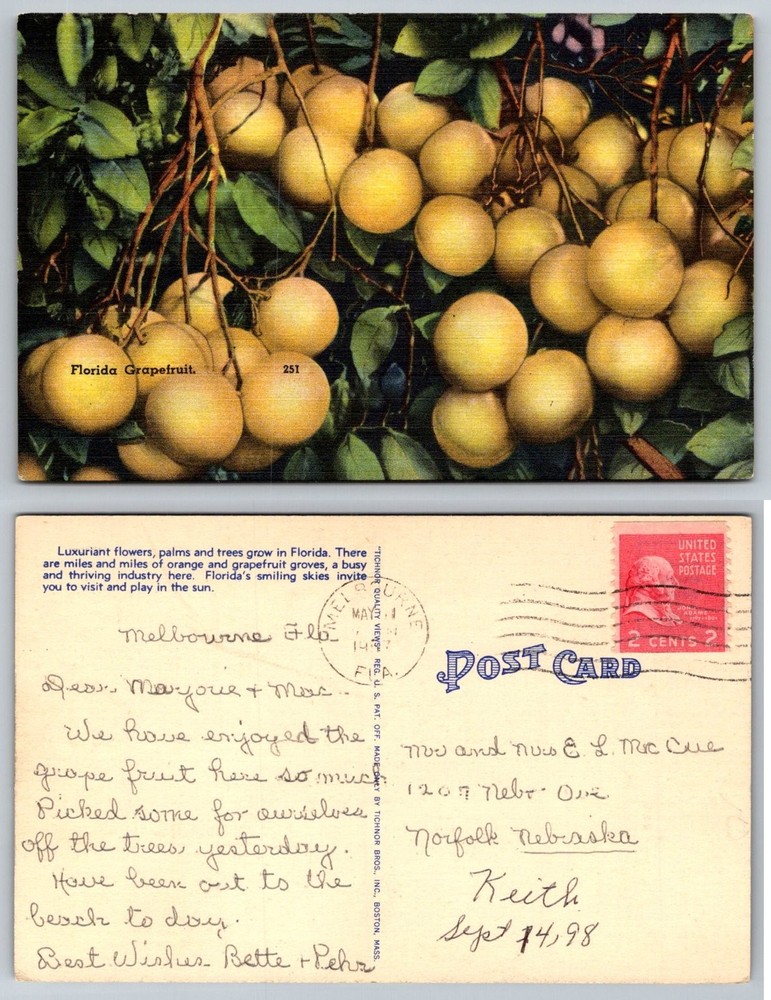 Florida Grapefruit. 251
Luxuriant flowers, palms and trees grow in Florida. There
are miles and miles of orange and grapefruit groves, a busy
and thriving industry here. Florida's smiling skies invite
you to visit and play in the sun.
"TICHNOR QUALITY VIEWS" REG. U. S. PAT. OFF. MADE ONLY BY TICHNOR BROS., INC., BOSTON, MASS.
MELBOURNE
MAY
FLA.
UNITED
STATES
POSTAGE
2 CENTS 2
POST CARD
Melbourne Fla
Dear Marjorie + Mac
We have enjoyed the
grape fruit here so much
Picked some for ourselves
off the trees yesterday.
Have been out to the
beach to day.
Best Wishes Bette +
Mr and Mrs E L McCue
1207 Nebr Ave.
Norfolk Nebraska
Keith
Sept 14, 98